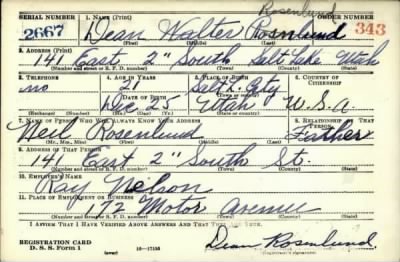 SERIAL NUMBER 1. NAME (Print) Rosenlund ORDER NUMBER
2667 Dean Walter Rosnlund 343
(First) (Middle) (Last)
2. ADDRESS (Print)
141 East 2" South Salt Lake Utah
(Number and street or R. F. D. number) (Town) (County) (State)
3. TELEPHONE 4. AGE IN YEARS 5. PLACE OF BIRTH 6. COUNTRY OF CITIZENSHIP
no 21 Salt L. City
DATE OF BIRTH
Dec. 25 Utah U.S.A.
(Mo.) (Day) (Yr.) (State or country)
7. NAME OF PERSON WHO WILL ALWAYS KNOW YOUR ADDRESS 8. RELATIONSHIP OF THAT PERSON
Neil Rosenlund Father
(Mr., Mrs., Miss) (First) (Middle) (Last)
9. ADDRESS OF THAT PERSON
141 East 2" South St.
(Number and street or R. F. D. number) (Town) (County) (State)
10. EMPLOYER'S NAME
Ray Nelson
11. PLACE OF EMPLOYMENT OR BUSINESS
172 Motor Avenue
(Number and street or R. F. D. number) (Town) (County) (State)
I AFFIRM THAT I HAVE VERIFIED ABOVE ANSWERS AND THAT THEY ARE TRUE.
REGISTRATION CARD
D. S. S. Form 1 (over) 16—17105 Dean Rosenlund
(Registrant's signature)